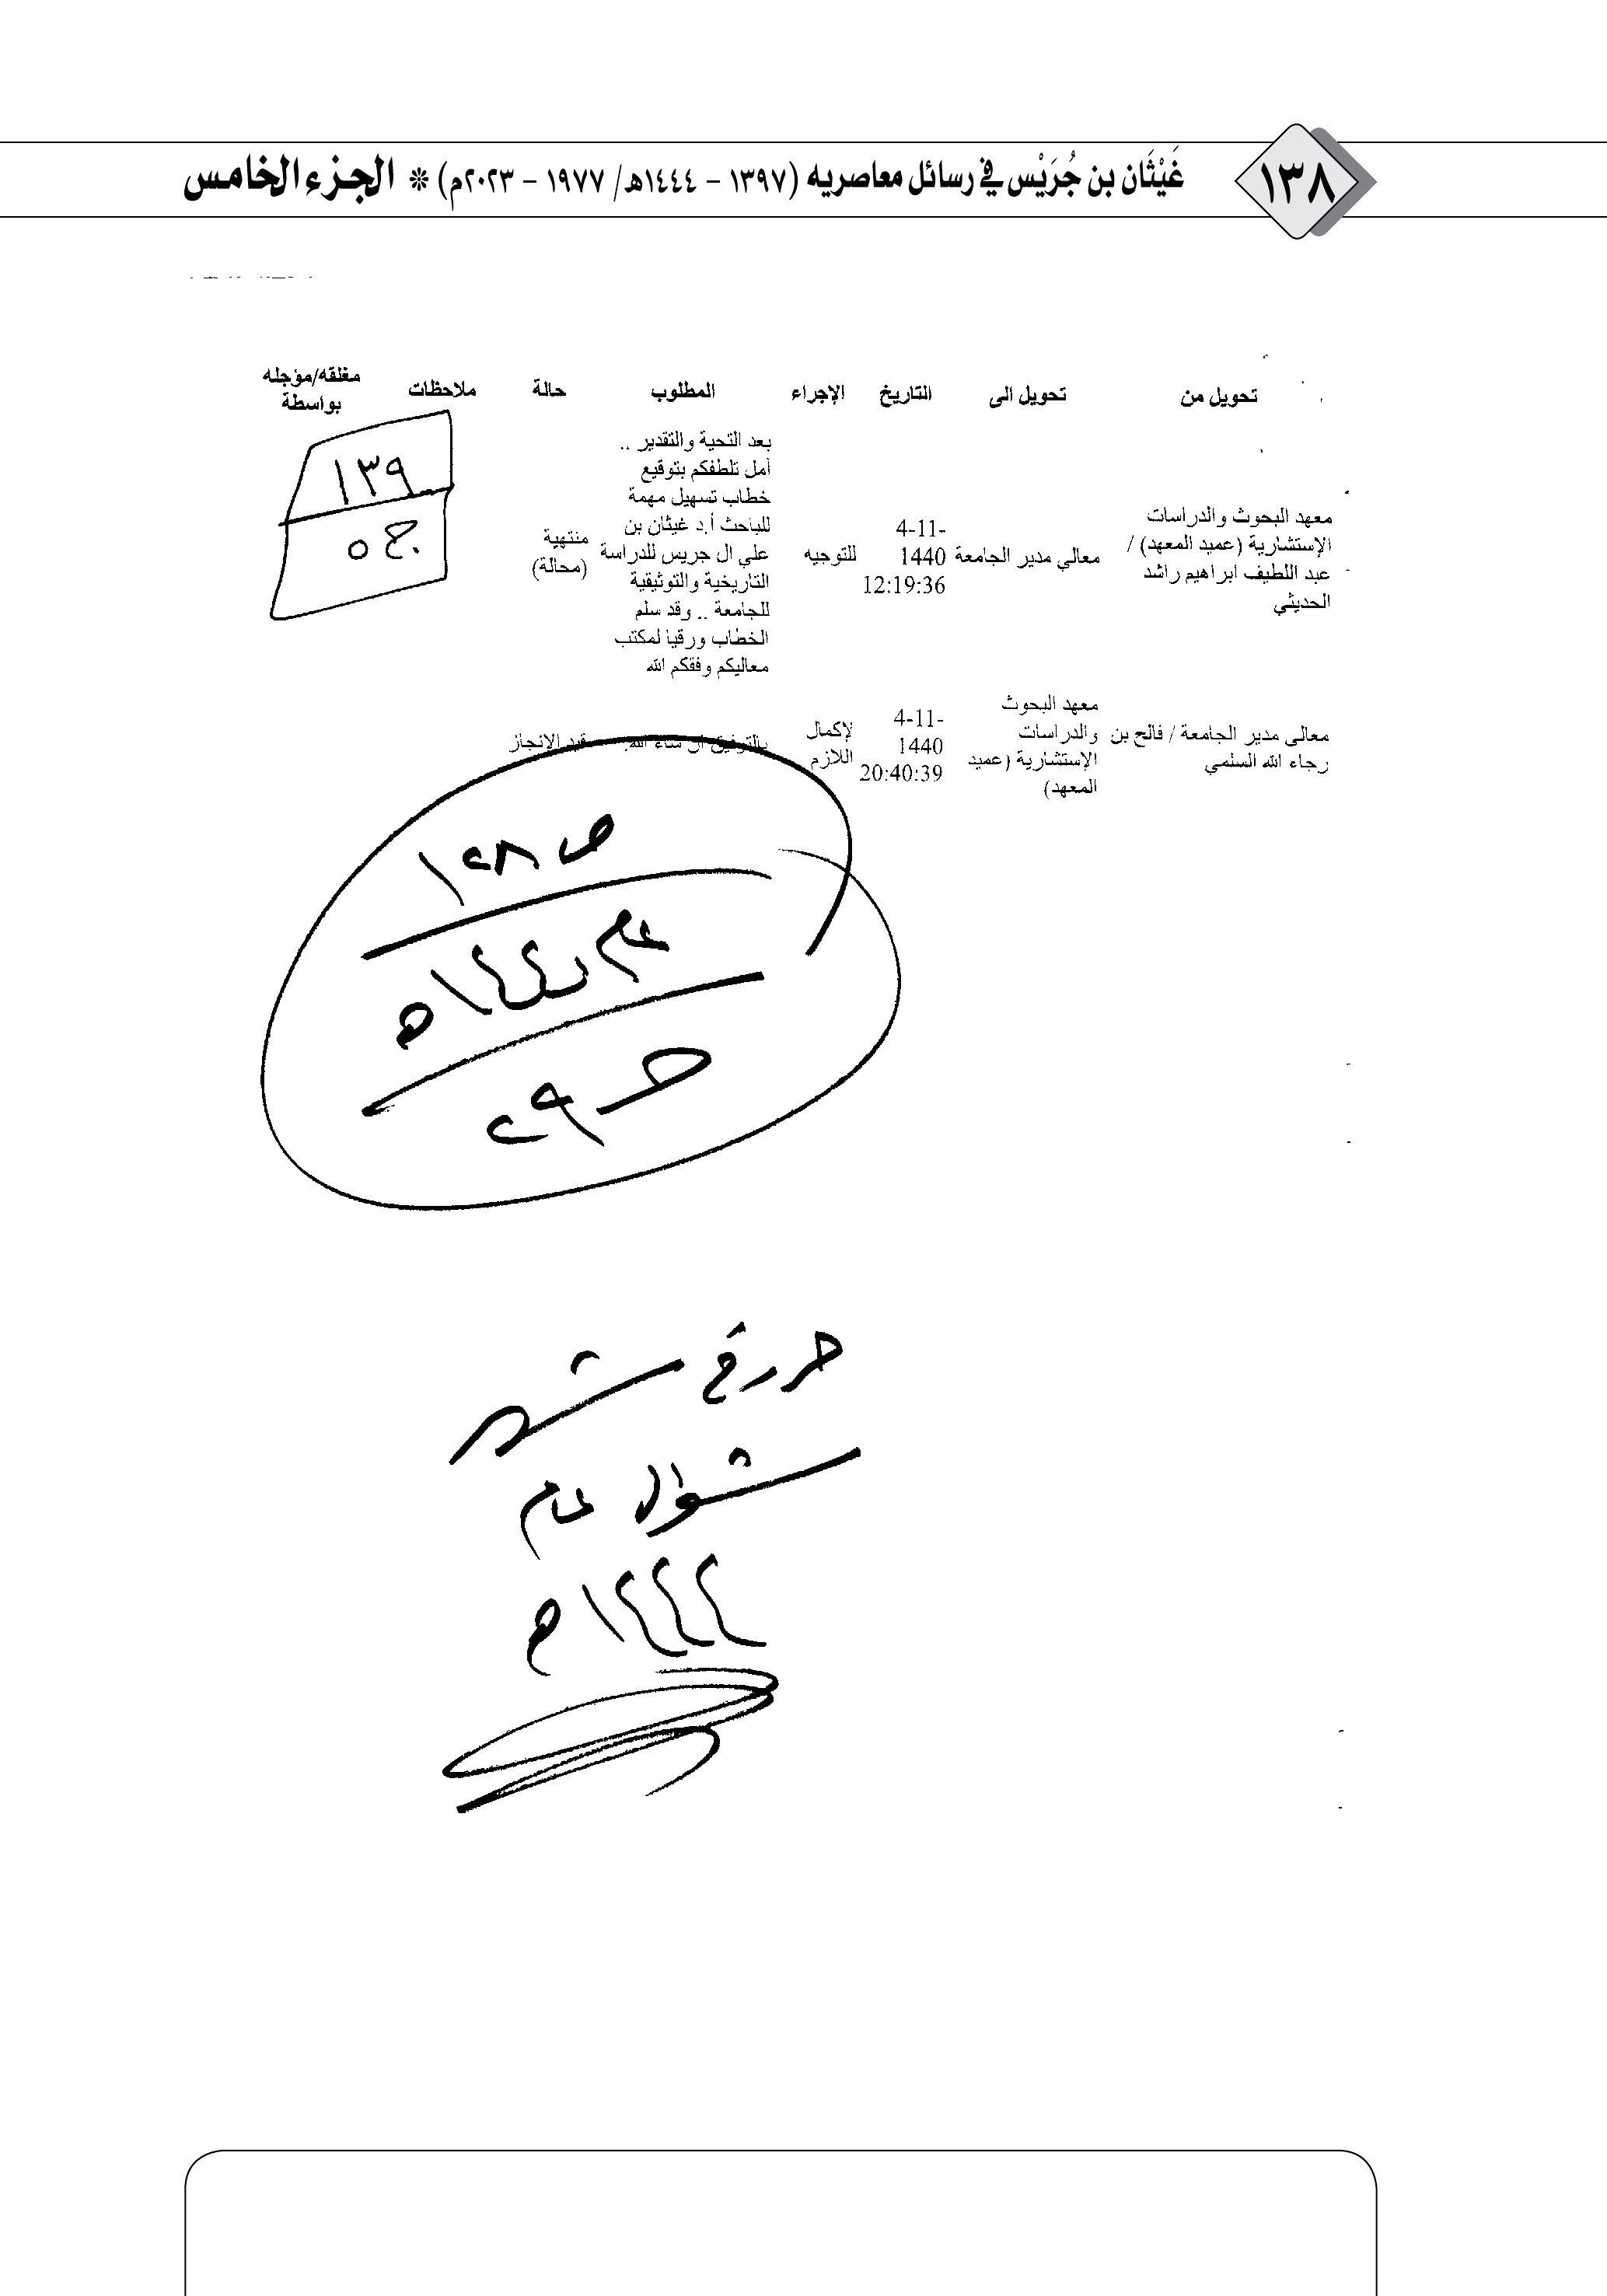 ١٣٨
غَيْثَان بن جُرَيْس في رسائل معاصريه (١٣٩٧ – ١٤٤٤هـ/ ١٩٧٧ – ٢٠٢٣م) * الجزء الخامس
تحويل من تحويل الى التاريخ الإجراء المطلوب حالة ملاحظات مغلقه/مؤجله
بواسطة
معهد البحوث والدراسات
الإستشارية (عميد المعهد) /
عبد اللطيف ابراهيم راشد
الحديثي
معالي مدير الجامعة
4-11-
1440
12:19:36
للتوجيه
بعد التحية والتقدير ..
آمل تلطفكم بتوقيع
خطاب تسهيل مهمة
للباحث أ.د غيثان بن
علي ال جريس للدراسة
التاريخية والتوثيقية
للجامعة .. وقد سلم
الخطاب ورقيا لمكتب
معاليكم وفقكم الله
منتهية
(محالة)
١٣٩
ج ٥
معالي مدير الجامعة / فالح بن
رجاء الله السلمي
معهد البحوث
والدراسات
الإستشارية (عميد
المعهد)
4-11-
1440
20:40:39
لإكمال
اللازم
بالتوفيق ان شاء الله.
قيد الإنجاز
ص ١٢٨
عام ١٤٤٥هـ
ح ٢٩
حرر في شهر
شوال عام
١٤٤٤هـ